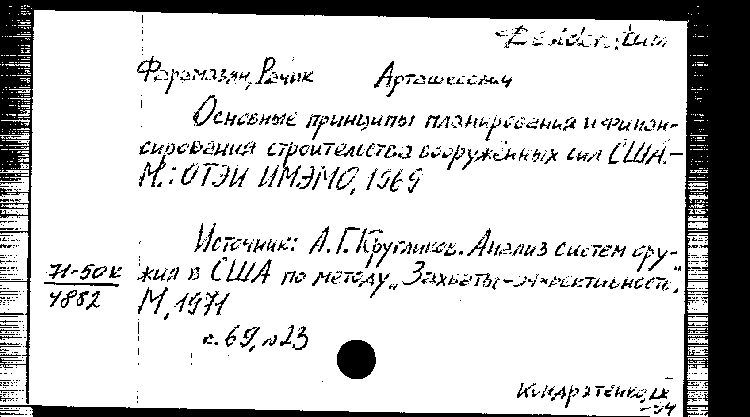 Desideratum
Фарамазян, Рачик Арташесович
Основные принципы планирования и финан-
сирования строительства вооружённых сил США.-
М.: ОТЭИ ИМЭМО, 1969
Источник: А.Г. Кругликов. Анализ систем ору-
71-50к жия в США по методу „Затраты-эффективность".
4882 М, 1971
с. 69, №23
Кондратенко, IX
-94